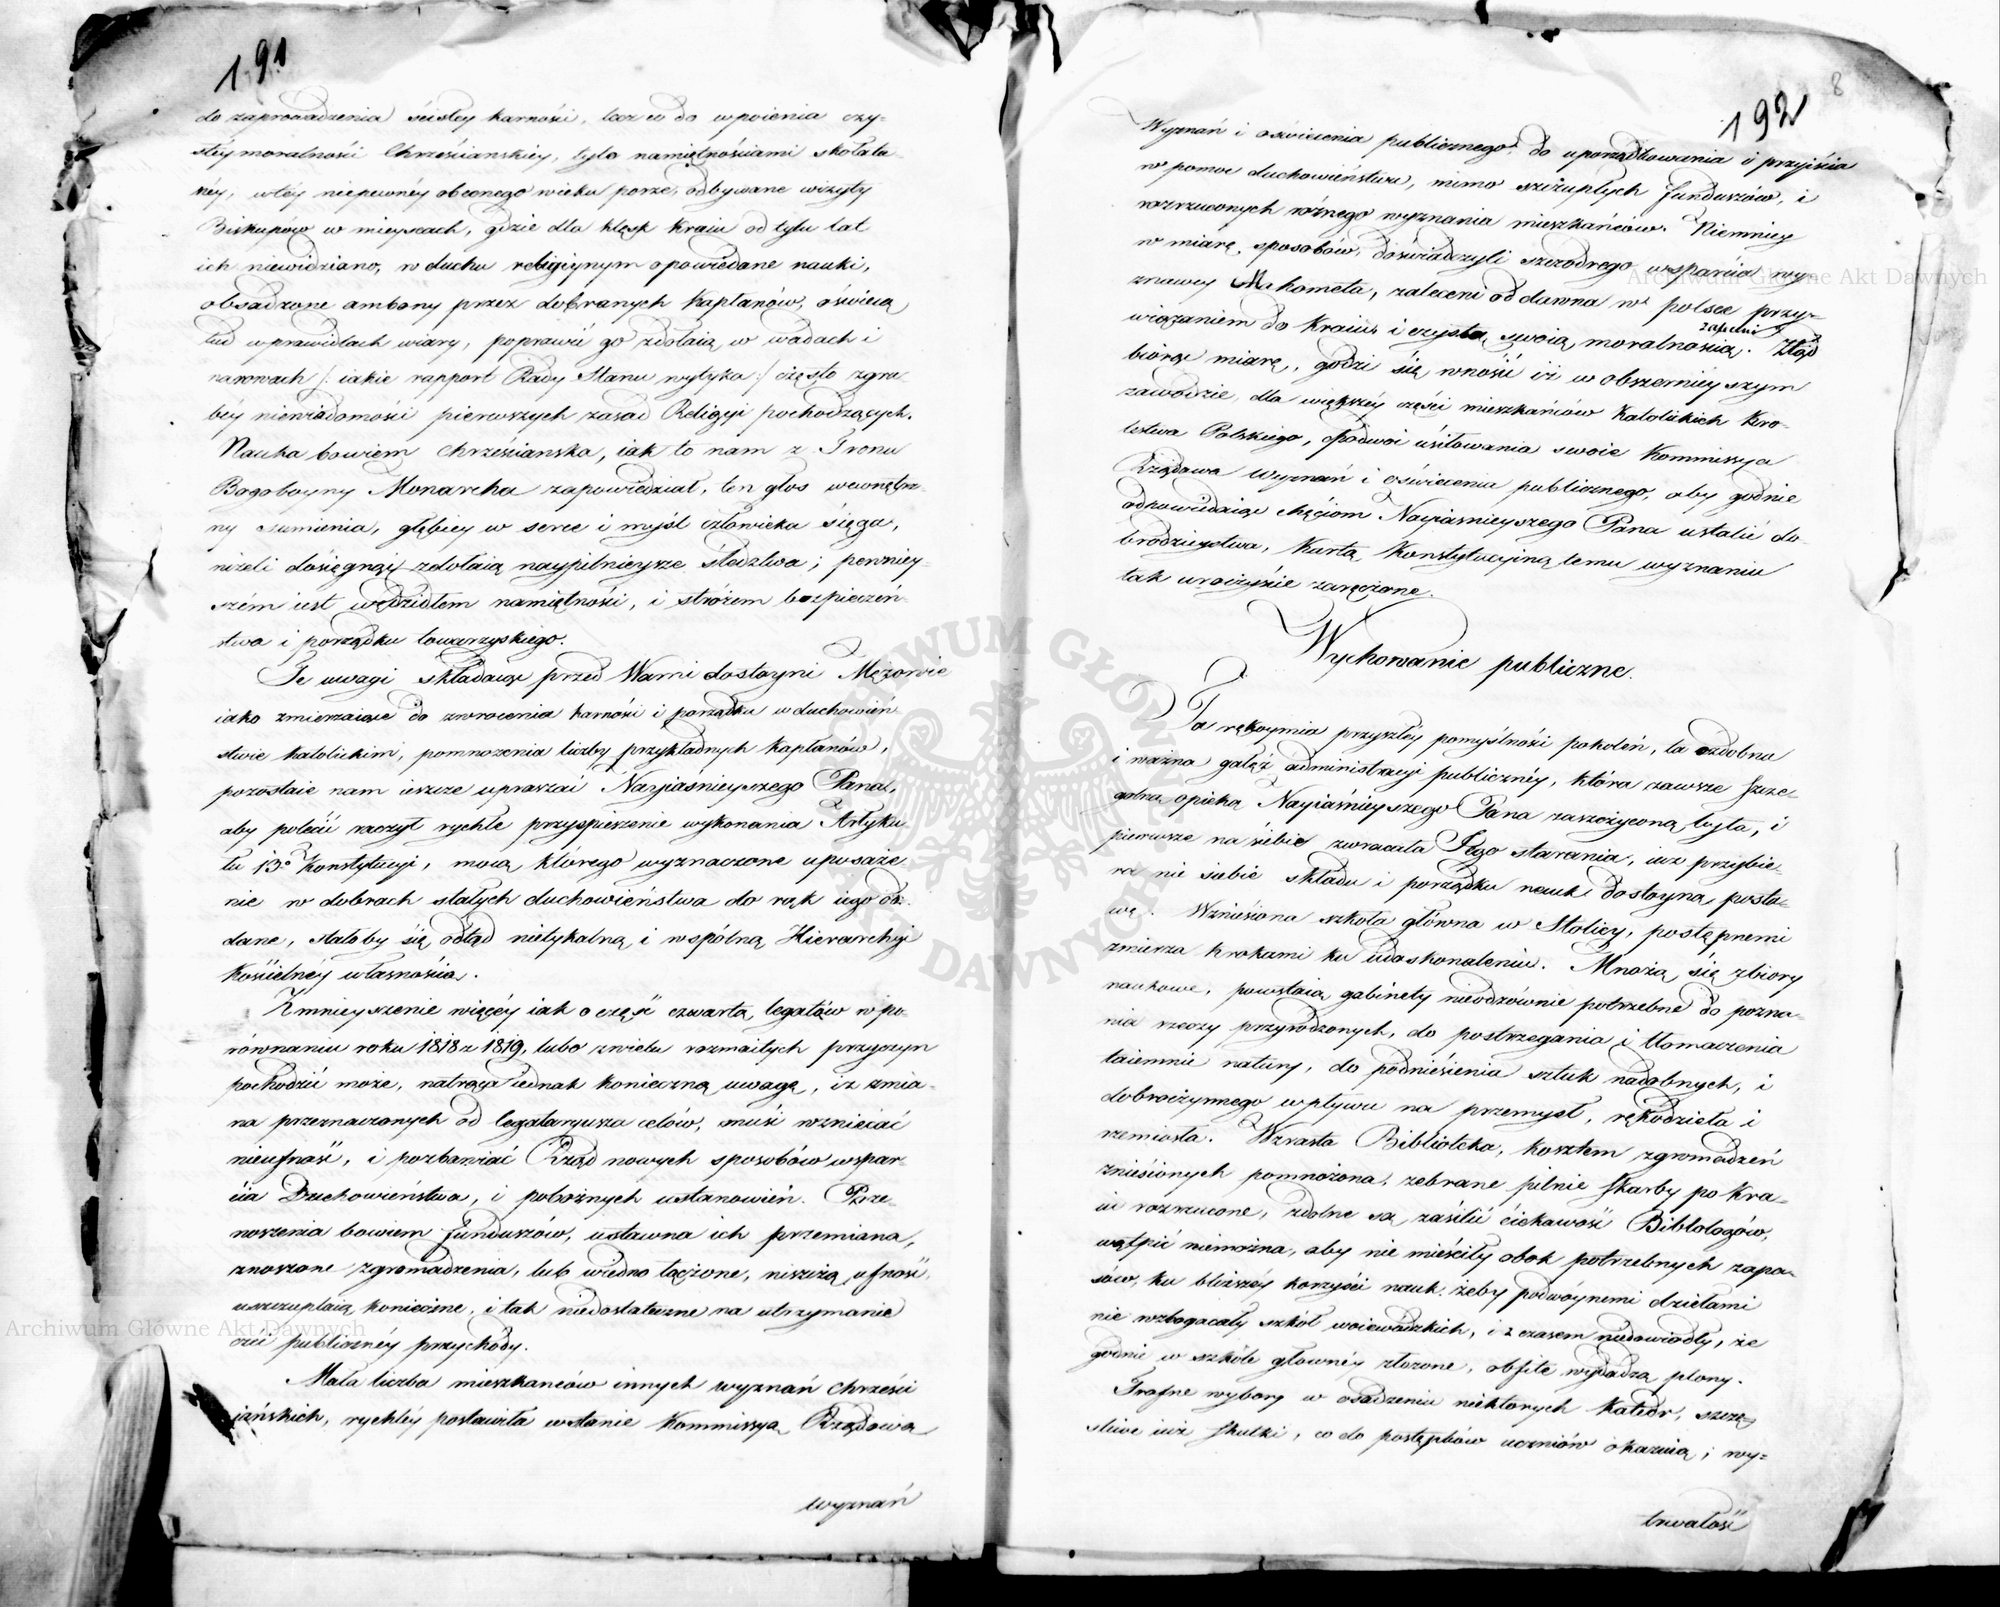 191
do zaprowadzenia ścisłey karności, lecz co do wpoienia czy-
stey moralności Chrześcianskiey, tylo namiętnościami skołata-
néy, w téy niepewnéy obecnego wieku porze, odbywane wizyty
Biskupów w mieyscach, gdzie dla klęsk Kraiu od tylu lat
ich niewidziano, w duchu religiynym opowiedane nauki,
obsadzone ambony przez dobranych Kapłanów, oświecą
lud w prawidłach wiary, poprawić go zdołaią w wadach i
narowach /: iakie rapport Rady Stanu wytyka :/ często z gru-
béy niewiadomości pierwszych zasad Religii pochodzących.
Nauka bowiem chrześcianska, iak to nam z Tronu
Bogoboyny Monarcha zapowiedział, ten głos wewnętrz-
ny sumienia, głębiey w serce i myśl człowieka sięga,
niżeli dosięgnąć zdołaią naypilnieysze śledztwa; pewniey-
szém iest wędzidłem namiętności, i stróżem bezpieczeń-
stwa i porządku towarzyskiego.
Te uwagi składaiąc przed Wami dostoyni Mężowie
iako zmierzaiące do zwrocenia karności i porządku w duchowień-
stwie katolickim, pomnożenia liczby przykładnych Kapłanów,
pozostaie nam ieszcze upraszać Nayiaśnieyszego Pana,
aby polecić raczył rychłe przyspieszenie wykonania Artyku-
łu 13o Konstytucyi, mocą którego wyznaczone uposaże-
nie w dobrach stałych duchowieństwa do rąk iego od-
dane, stałoby się odtąd nietykalną i wspólną Hierarchyi
Kościelnéy własnością.
Zmnieyszenie więcéy iak o część czwartą legatów w po-
równaniu roku 1818 z 1819, lubo z wielu rozmaitych przyczyn
pochodzić może, natrąca iednak konieczną uwagę, iż zmia-
na przeznaczonych od legataryusza celów, musi wzniecać
nieufność, i pozbawiać Rząd nowych sposobów wspar-
cia Duchowieństwa, i pobożnych ustanowień. Prze-
noszenia bowiem funduszów, ustawna ich przemiana,
znoszone zgromadzenia, lub wiedno łączone, niszczą ufność,
uszczuplaią konieczne, i tak niedostateczne na utrzymanie
czci publicznéy przychody.
Mała liczba mieszkanców innych wyznań chrześci-
iańskich, rychléy postawiła w stanie Kommissyą Rządową
wyznań
192
8
Wyznań i oświecenia publicznego do uporządkowania i przyiścia
w pomoc duchowieństwu, mimo szczupłych funduszów, i
rozrzuconych różnego wyznania mieszkańców. Niemniey
w miarę sposobów, doświadczyli szczodrego wsparcia wy-
znawcy Mahometa, zaleceni od dawna w polsce przy-
wiązaniem do Kraiu i czystą swoią moralnością. Ztąd
biorąc miarę, godzi się wnosić iż w obszernieyszym
zawodzie, dla większéy części mieszkańców Katolickich Kró-
lestwa Polskiego, podwoi usiłowania swoie Kommissya
Rządowa Wyznań i oświecenia publicznego, aby godnie
odpowiedaiąc chęciom Nayiasnieyszego Pana ustalić do-
brodzieystwa, Kartą Konstytucyiną temu wyznaniu
tak uroczyście zaręczone.
Wychowanie publiczne.
Ta rękoymia przyszłéy pomyślności pokoleń, ta ozdobna
i ważna gałęź administracyi publicznéy, która zawsze szcze-
gólną opieką Nayiaśnieyszego Pana zaszczyconą była, i
pierwsze na siebie zwracała Jego starania, iuż przybie-
ra nie siebie składu i porządku nauk dostoyną posta-
wę. Wzniesiona szkoła główna w Stolicy, postępnemi
zmierza krokami ku udoskonaleniu. Mnożą się zbiory
naukowe, powstaią gabinety nieodzównie potrzebne do pozna-
nia rzeczy przyrodzonych, do postrzegania i tłomaczenia
taiemnic natury, do podniesienia sztuk nadobnych, i
dobroczynnego wpływu na przemysł, rękodzieła i
rzemiosła. Wzrasta Biblioteka, kosztem zgromadzeń
zniesionych pomnożona, zebrane pilnie skarby po Kra-
iu rozrzucone, zdolne są zasilić ciekawość Bibliologów,
wątpić niemożna, aby nie mieściły obok potrzebnych zapa-
sów, ku bliższéy korzyści nauk, żeby podwóynemi dziełami
nie wzbogacały szkół woiewódzkich, i z czasem niedowiodły, że
godnie w szkole głównéy złożone, obfite wydadzą plony.
Trafne wybory w osadzeniu niektórych Katedr, szczę-
śliwe iuż skutki, co do postępków uczniów okazuią; wy-
trwałość
Archiwum Główne Akt Dawnych
Archiwum Główne Akt Dawnych
ARCHIWUM GŁÓWNE AKT DAWNYCH